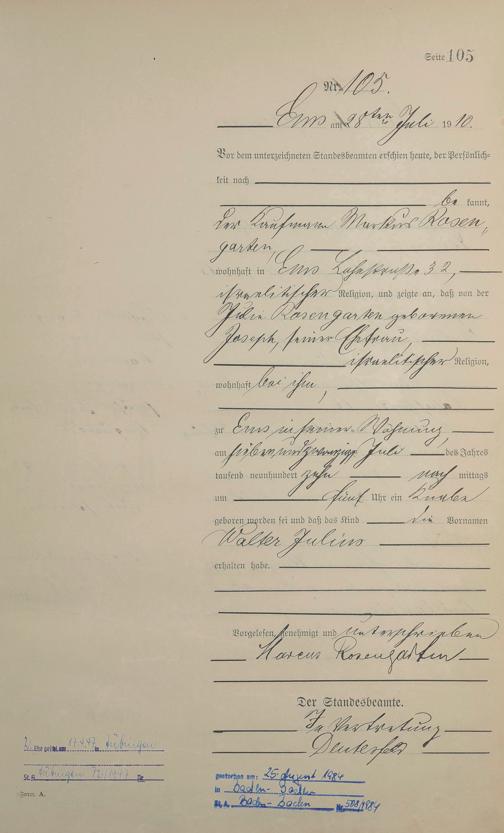 Seite 105
Nr. 105.
Ems am 28ten Juli 1910.
Vor dem unterzeichneten Standesbeamten erschien heute, der Persönlich-
keit nach
be kannt,
der Kaufmann Markus Rosen-
garten,
wohnhaft in Ems Lahnstraße 32,
israelitischer Religion, und zeigte an, daß von der
Julie Rosengarten geborenen
Joseph, seiner Ehefrau,
israelitischer Religion,
wohnhaft bei ihm,
zu Ems in seiner Wohnung
am siebenundzwanzigsten Juli des Jahres
tausend neunhundert zehn nach mittags
um fünf Uhr ein Knabe
geboren worden sei und daß das Kind die Vornamen
Walter Julius
erhalten habe.
Vorgelesen, genehmigt und unterschrieben
Marcus Rosengarten
Der Standesbeamte.
In Vertretung
Ehe geschl. am 17.4.47 in Tübingen
St. A. Tübingen Nr.
gestorben am: 25. August 1984
in Baden-Baden
St. A. Baden-Baden Nr. 508/1984
Form. A.